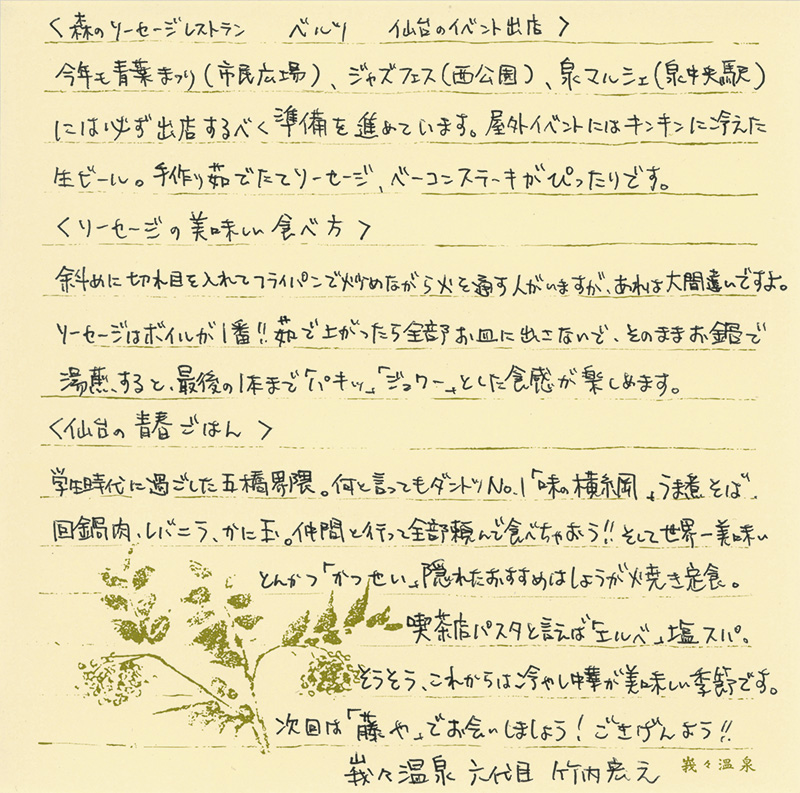 〈 森のソーセージレストラン　ベルツ　仙台のイベント出店 〉
今年も青葉まつり(市民広場)、ジャズフェス(西公園)、泉マルシェ(泉中央駅)
には必ず出店するべく準備を進めています。屋外イベントにはキンキンに冷えた
生ビール。手作り茹でたてソーセージ、ベーコンステーキがぴったりです。
〈 ソーセージの美味しい食べ方 〉
斜めに切れ目を入れてフライパンで炒めながら火を通す人がいますが、あれは大間違いですよ。
ソーセージはボイルが1番!!茹で上がったら全部お皿に出さないで、そのままお鍋で
湯煎すると、最後の1本まで「パキッ」「ジュワー」とした食感が楽しめます。
〈仙台の青春ごはん 〉
学生時代に過ごした五橋界隈。何と言ってもダントツNo.1「味の横綱」うま煮そば、
回鍋肉、レバニラ、かに玉。仲間と行って全部頼んで食べちゃおう!!そして世界一美味い
とんかつ「かつせい」隠れたおすすめはしょうが焼き定食。
喫茶店パスタと言えば「エルベ」塩スパ。
そうそう、これからは冷やし中華が美味しい季節です。
次回は「藤や」でお会いしましょう!ごきげんよう!!
峩々温泉 六代目 竹内宏之
峩々温泉